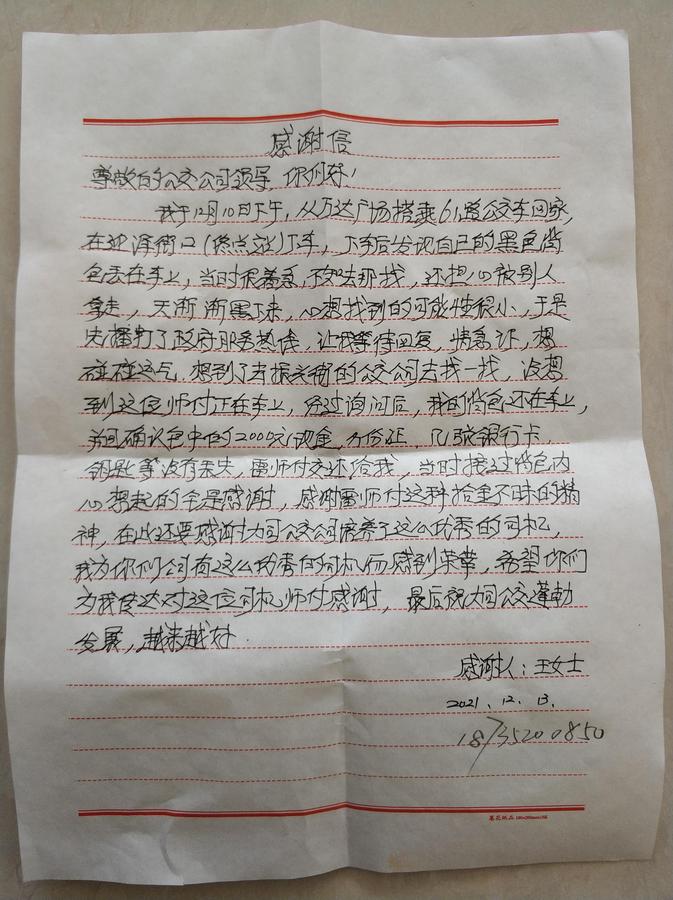 感谢信
尊敬的公交公司领导，你们好！
我于12月10日下午，从万达广场搭乘61路公交车回家，
在迎泽街口（终点站）下车，下车后发现自己的黑色背
包丢在车上，当时很着急，不知去那找，还担心被别人
拿走，天渐渐黑下来，心想找到的可能性很小，于是
先播打了政府服务热线，让我等待回复，情急之下，想
碰碰运气，想到了去振兴街的公交公司去找一找，没想
到这位师付正在车上，经过询问后，我的背包还在车上，
并且确认包中的2000元现金，身份证，几张银行卡，
钥匙等没有丢失，雷师付交还给我，当时接过背包内
心想起的全是感谢，感谢雷师付这种拾金不昧的精
神，在此还要感谢大同公交公司培养了这么优秀的司机，
我为你们公司有这么优秀的司机而感到荣幸，希望你们
为我传达对这位司机师付感谢，最后祝大同公交蓬勃
发展，越来越好.
感谢人：王女士
2021.12.13.
18735200850